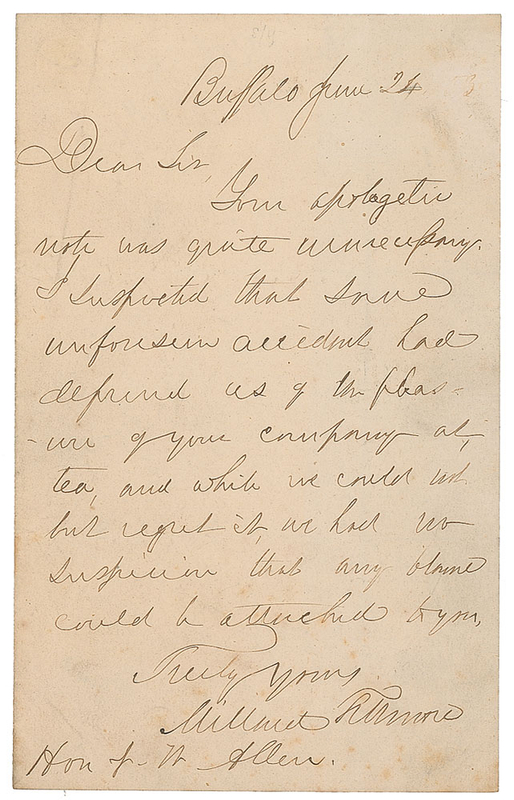 Buffalo June 24
Dear Sir,
Your apologetic
note was quite unnecessary.
I suspected that some
unforeseen accident had
deprived us of the pleas-
-ure of your company at
tea, and while we could not
but regret it, we had no
suspicion that any blame
could be attached to you.
Truly yours
Millard Fillmore
Hon W Allen.